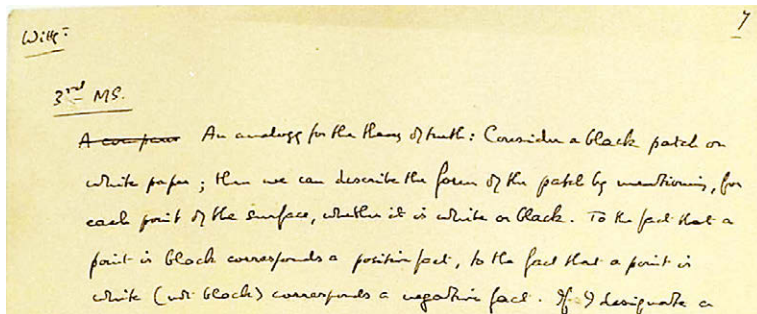 7
Witt=
3rd MS.
A compar An analogy for the theory of truth: Consider a black patch on
white paper; then we can describe the form of the patch by mentioning, for
each point of the surface, whether it is white or black. To the fact that a
point is black corresponds a positive fact, to the fact that a point is
white (not black) corresponds a negative fact. If I designate a